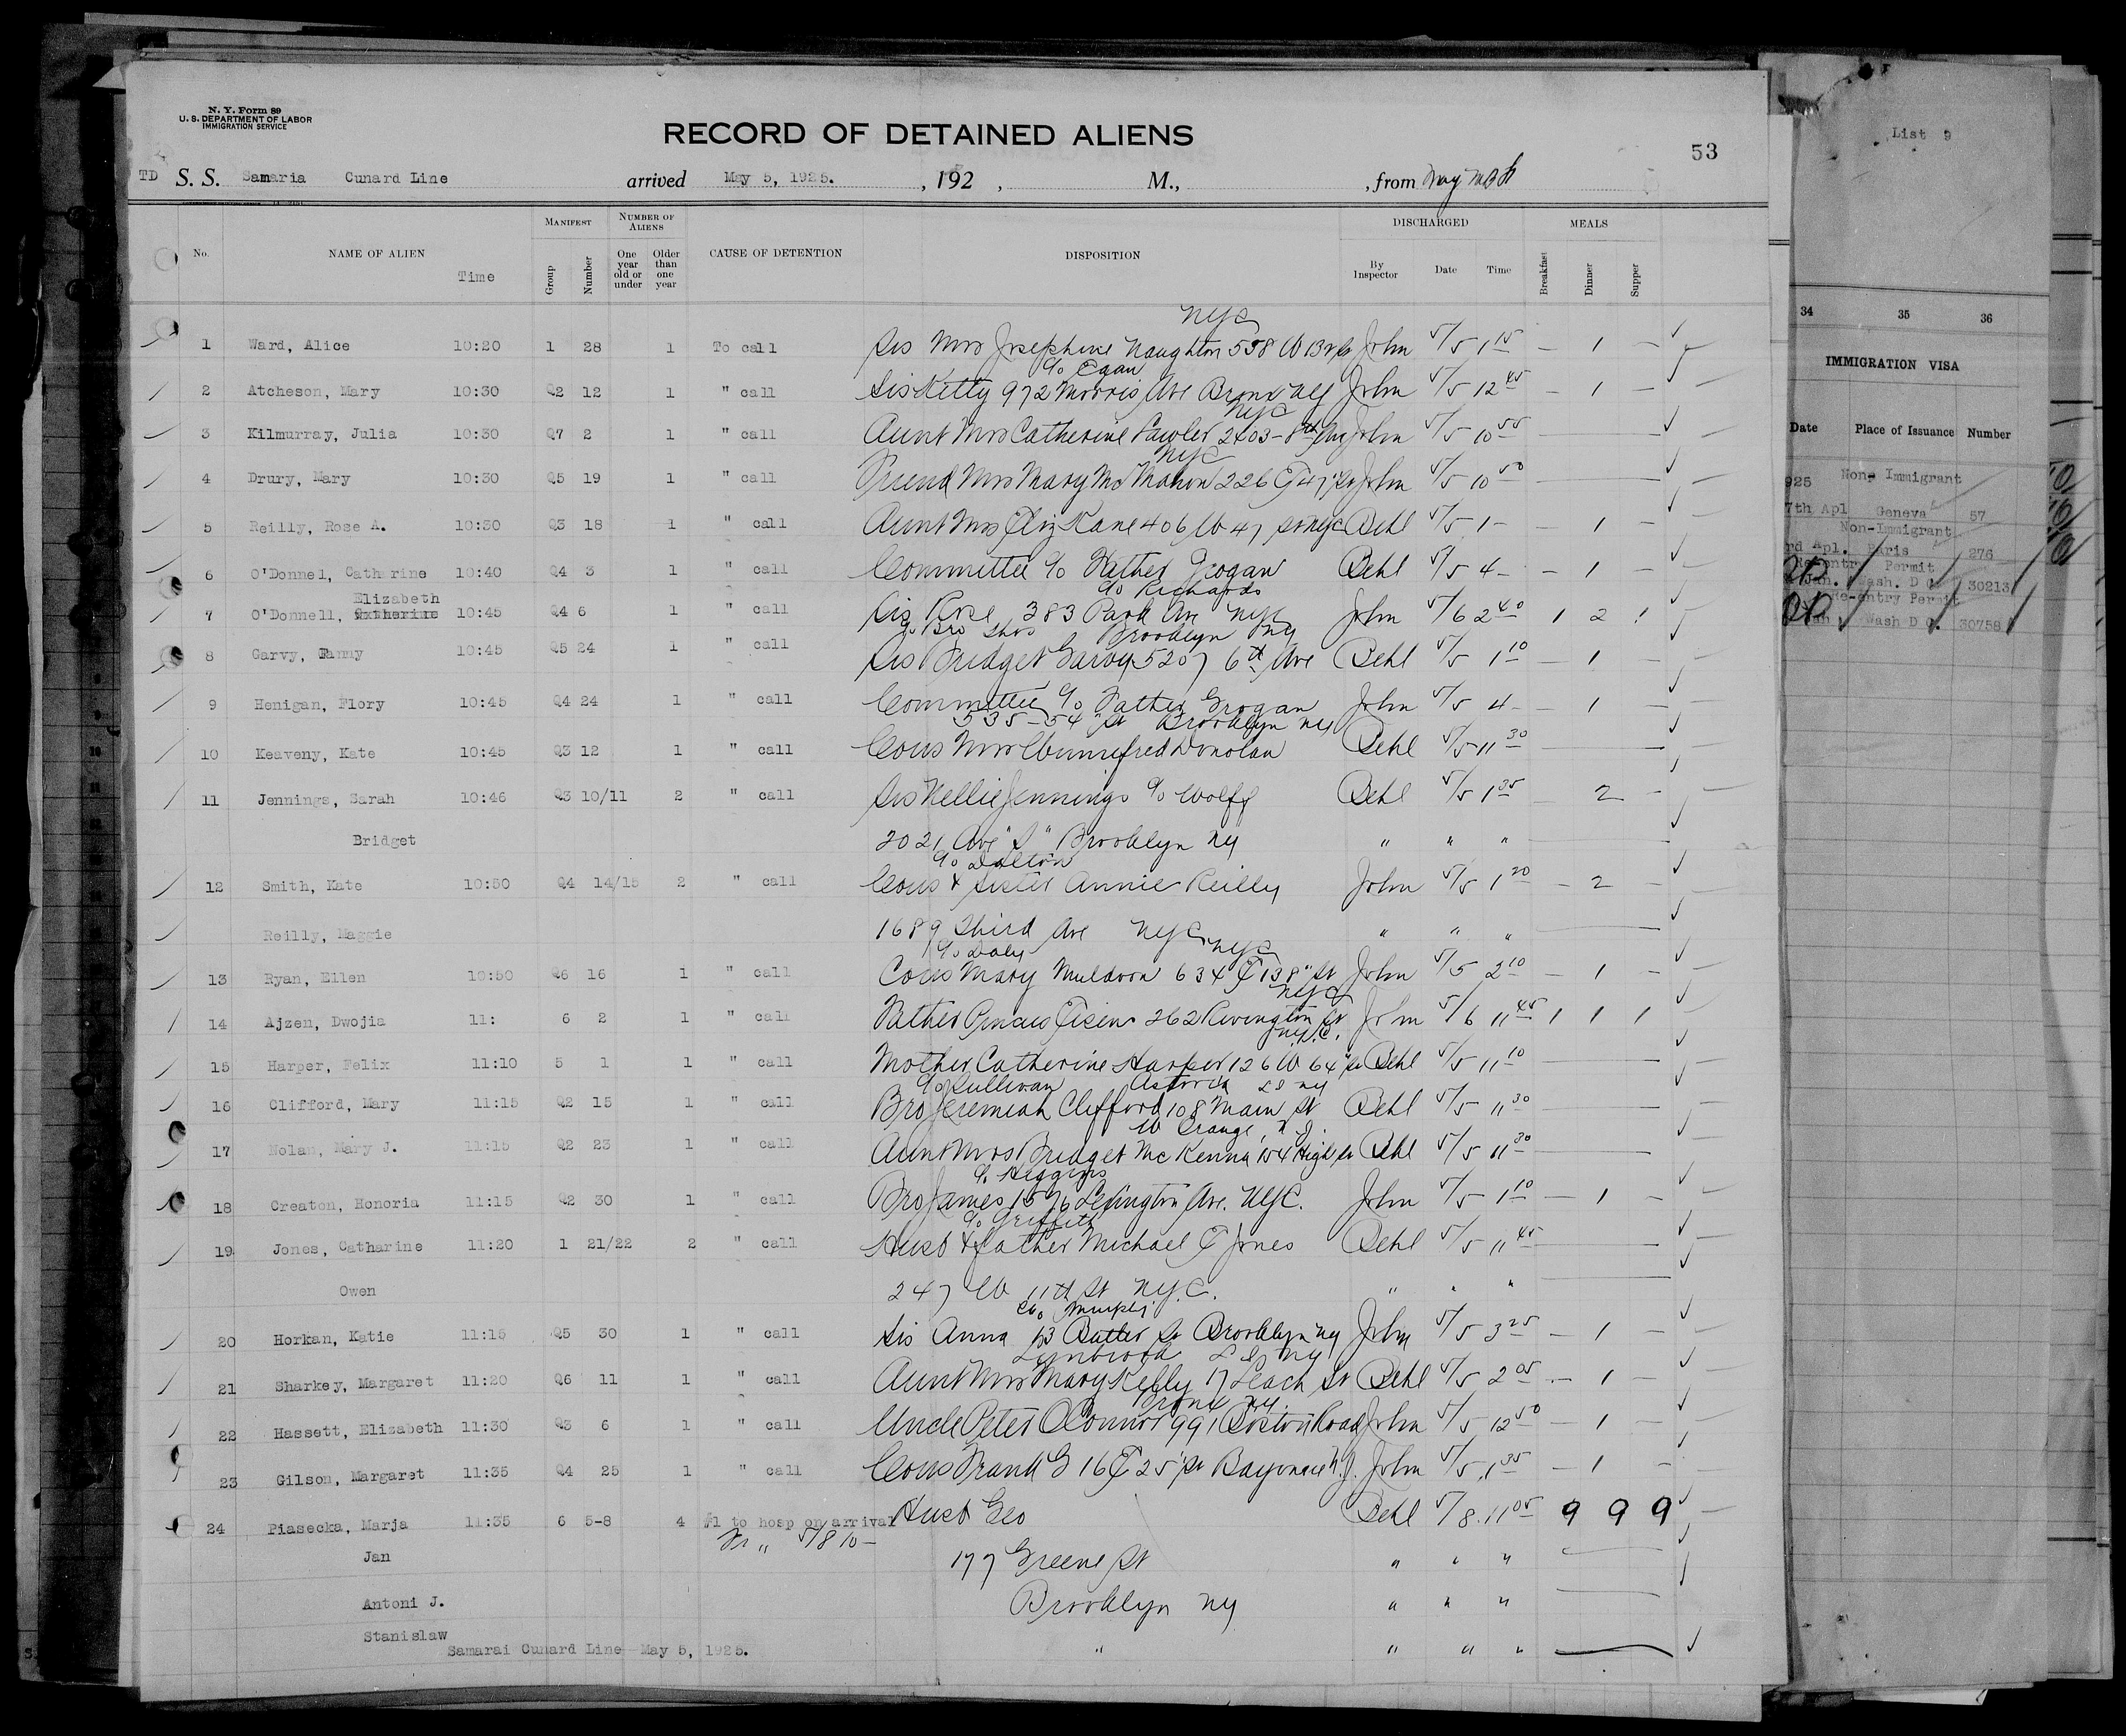 N. Y. Form 89
U. S. DEPARTMENT OF LABOR
IMMIGRATION SERVICE
RECORD OF DETAINED ALIENS
53
TD S. S. Samaria Cunard Line arrived May 5, 1925. , 192 , M., , from
No. NAME OF ALIEN Time MANIFEST Group Number NUMBER OF ALIENS One year old or under Older than one year CAUSE OF DETENTION DISPOSITION DISCHARGED By Inspector Date Time MEALS Breakfast Dinner Supper
NYC
1 Ward, Alice 10:20 1 28 1 To call Sis Mrs Josephine Naughton 558 W John 5/5 1 15 — 1 —
c/o Egan
2 Atcheson, Mary 10:30 Q2 12 1 " call Sis Ketty 972 Morris Ave Bronx NY John 5/5 12 45 — 1 —
NYC
3 Kilmurray, Julia 10:30 Q7 2 1 " call Aunt Mrs Catherine Lawler 2403-8th Ave John 5/5 10 55
NYC
4 Drury, Mary 10:30 Q5 19 1 " call Friend Mrs Mary McMahon 226 E 47 " St John 5/5 10 50
5 Reilly, Rose A. 10:30 Q3 18 1 " call Aunt Mrs Eliz Kane 406 W 47 St NYC Behl 5/5 1 — — 1 —
6 O'Donnel, Catherine 10:40 Q4 3 1 " call Committee c/o Father Grogan Behl 5/5 4 — — 1 —
Elizabeth c/o Richards
7 O'Donnell, Catherine 10:45 Q4 6 1 " call Sis Rose 383 Park Ave NYC John 5/6 2 40 1 2 1
c/o Bro Thos Brooklyn NY
8 Garvy, Fanny 10:45 Q5 24 1 " call Sis Bridget Garvy 5207 6th Ave Behl 5/5 1 10 — 1 —
9 Henigan, Flory 10:45 Q4 24 1 " call Committee c/o Father Grogan John 5/5 4 — — 1 —
535-54 " St Brooklyn NY
10 Keaveny, Kate 10:45 Q3 12 1 " call Cous Mrs Winnifred Donolan Behl 5/5 11 30
11 Jennings, Sarah 10:46 Q3 10/11 2 " call Sis Nellie Jennings c/o Wolff Behl 5/5 1 35 2 —
Bridget 2021 Ave "S" Brooklyn NY " " "
c/o Dalton
12 Smith, Kate 10:50 Q4 14/15 2 " call Cous & Sister Annie Reilly John 5/5 1 20 — 2 —
Reilly, Maggie 1689 Third Ave NYC " " "
c/o Daly NYC
13 Ryan, Ellen 10:50 Q6 16 1 " call Cous Mary Muldoon 634 E 138 " St John 5/5 2 10 — 1 —
NYC
14 Ajzen, Dwojia 11: 6 2 1 " call Father Eisen 262 Rivington St John 5/6 11 45 1 1 1
N.Y.C.
15 Harper, Felix 11:10 5 1 1 " call Mother Catherine Harper 126 W 64 " St Behl 5/5 11 10
c/o Sullivan Astoria LI NY
16 Clifford, Mary 11:15 Q2 15 1 " call Bro Jeremiah Clifford 108 Main St Behl 5/5 11 30
W Orange, N.J.
17 Nolan, Mary J. 11:15 Q2 23 1 " call Aunt Mrs Bridget McKenna 154 High St Behl 5/5 11 30
c/o Higgins
18 Creaton, Honoria 11:15 Q2 30 1 " call Bro James 1576 Lexington Ave. NYC. John 5/5 1 10 — 1 —
c/o Griffith
19 Jones, Catharine 11:20 1 21/22 2 " call Husb & father Michael E Jones Behl 5/5 11 45
Owen 247 W 11th St NYC. " " "
c/o Murphy
20 Horkan, Katie 11:15 Q5 30 1 " call Sis Anna Butler St Brooklyn NY John 5/5 3 25 — 1 —
Lynbrook LI NY
21 Sharkey, Margaret 11:20 Q6 11 1 " call Aunt Mrs Mary Kelly 17 Leach St Behl 5/5 2 05 — 1 —
Bronx NY.
22 Hassett, Elizabeth 11:30 Q3 6 1 " call Uncle Peter O'Connor 991 Boston Road John 5/5 12 50 — 1 —
23 Gilson, Margaret 11:35 Q4 25 1 " call Cous Frank G 16 E 25 " St Bayonne N.J. John 5/5 1 35 — 1 —
24 Piasecka, Marja 11:35 6 5-8 4 #1 to hosp on arrival Husb Geo Behl 5/8 11 05 9 9 9
Fr " 5/8 10 —
Jan 177 Greene St " " "
Antoni J. Brooklyn NY " " "
Stanislaw " " " "
Samarai Cunard Line—May 5, 1925.
List 9
34 35 36
IMMIGRATION VISA
Date Place of Issuance Number
925 Non- Immigrant
7th Apl Geneva 57
Non-Immigrant
rd Apl. Paris 276
Re-entry Permit
Jan. Wash. D C. 30213
Re-entry Permit
Jan Wash D C. 30758